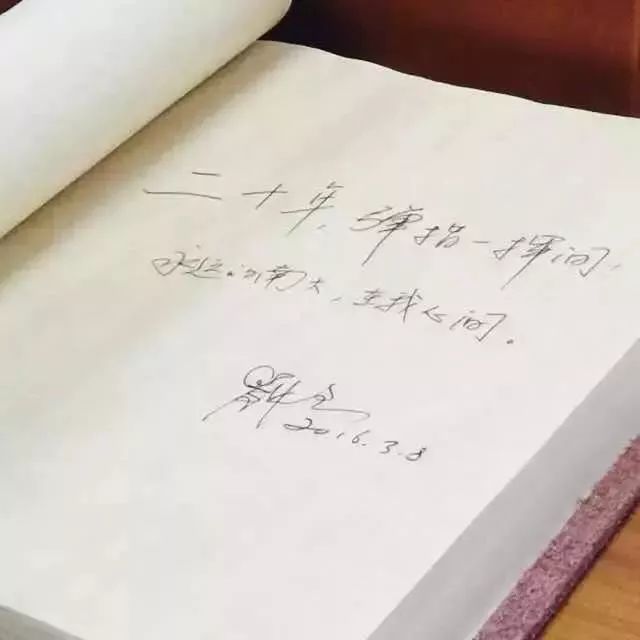 二十年,弹指一挥间,
永远的南大,在我心间。
2016.3.8